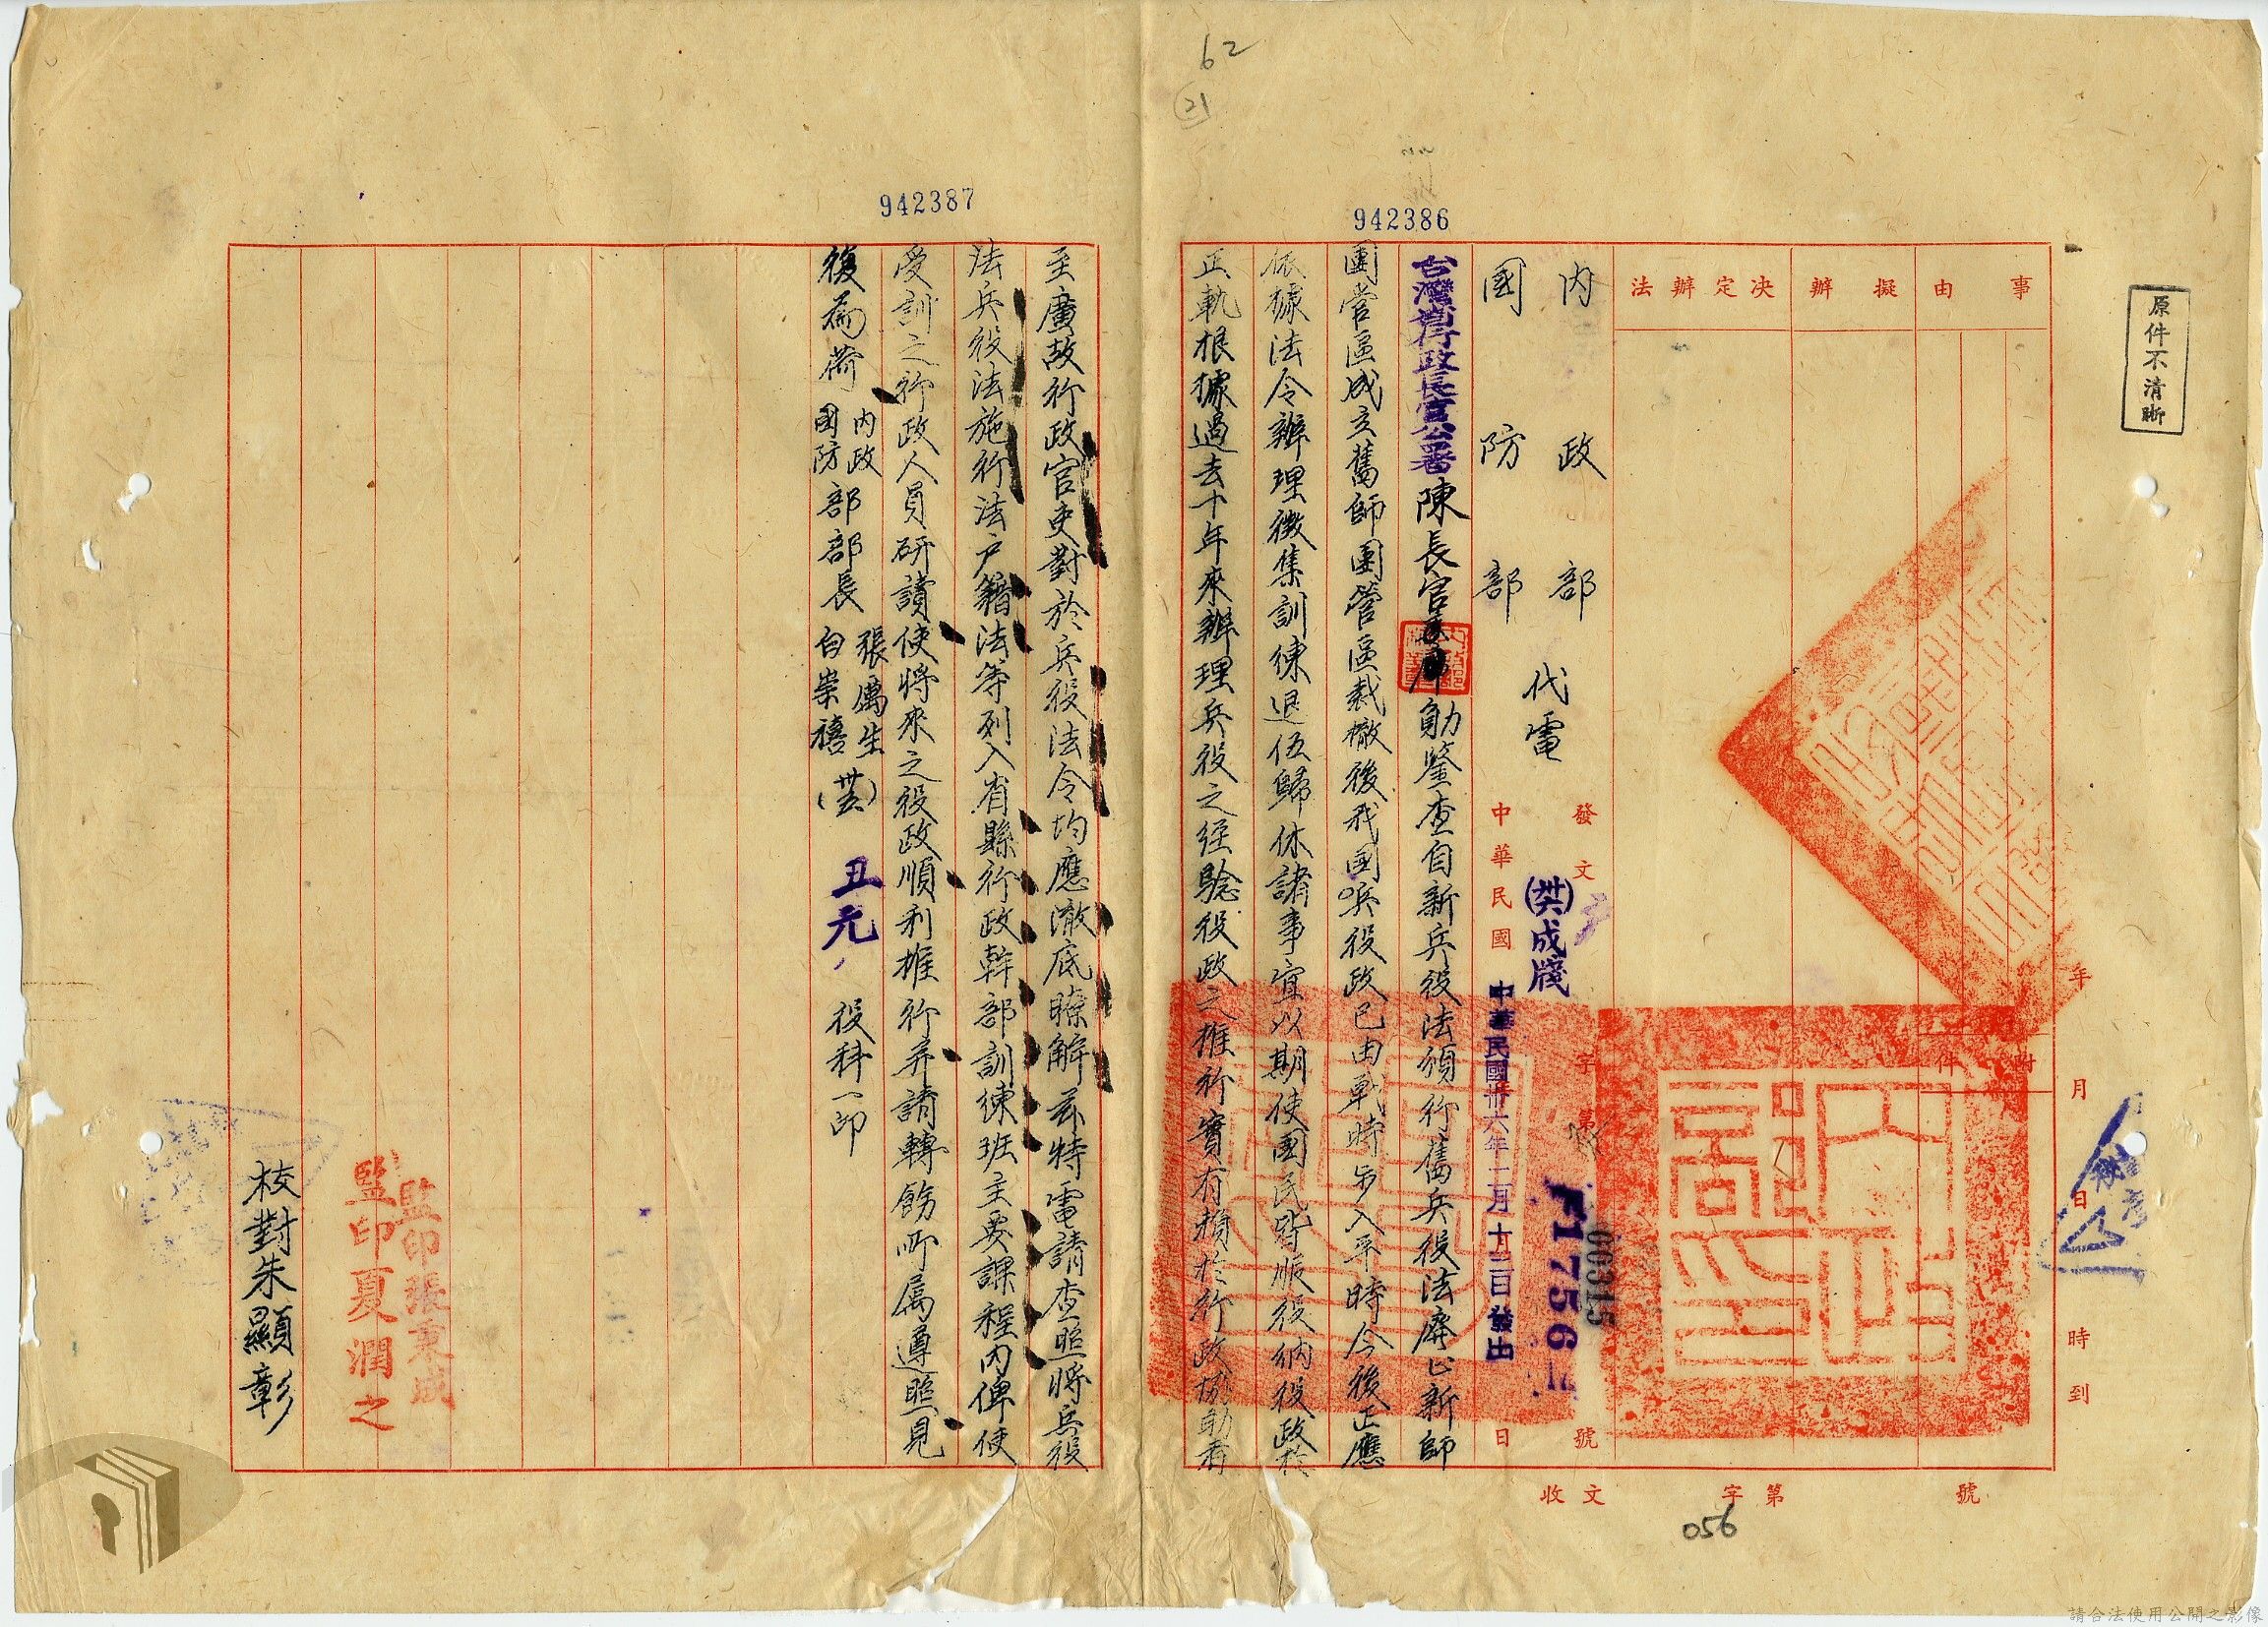 62
21
942386
942387
原件不清晰
事由
擬辦
決定辦法
附件
年月日時到
內政部
國防部
代電
發文
字第
號
成牋
F1756
00315
中華民國
日
中華民國卅六年二月十三日發出
台灣省行政長官公署陳長官
勛鑒查自新兵役法頒行舊兵役法廢止新師
團管區成立舊師團管區裁撤後我國兵役政已由戰時步入平時今後正應
依據法令辦理徵集訓練退伍歸休諸事宜以期使國民皆服役納役政於
正軌根據過去十年來辦理兵役之經驗役政之推行實有賴於行政協助者
至廣故行政官吏對於兵役法令均應澈底瞭解茲特電請查照將兵役
法兵役法施行法戶籍法等列入省縣行政幹部訓練班主要課程內俾使
受訓之行政人員研讀使將來之役政順利推行并請轉飭所属遵照見
復為荷
內政
國防
部部長
張厲生
白崇禧
丑元
役科一印
監印張秉成
監印夏潤之
校對朱顯彰
收文
字第
號
056
請合法使用公開之影像